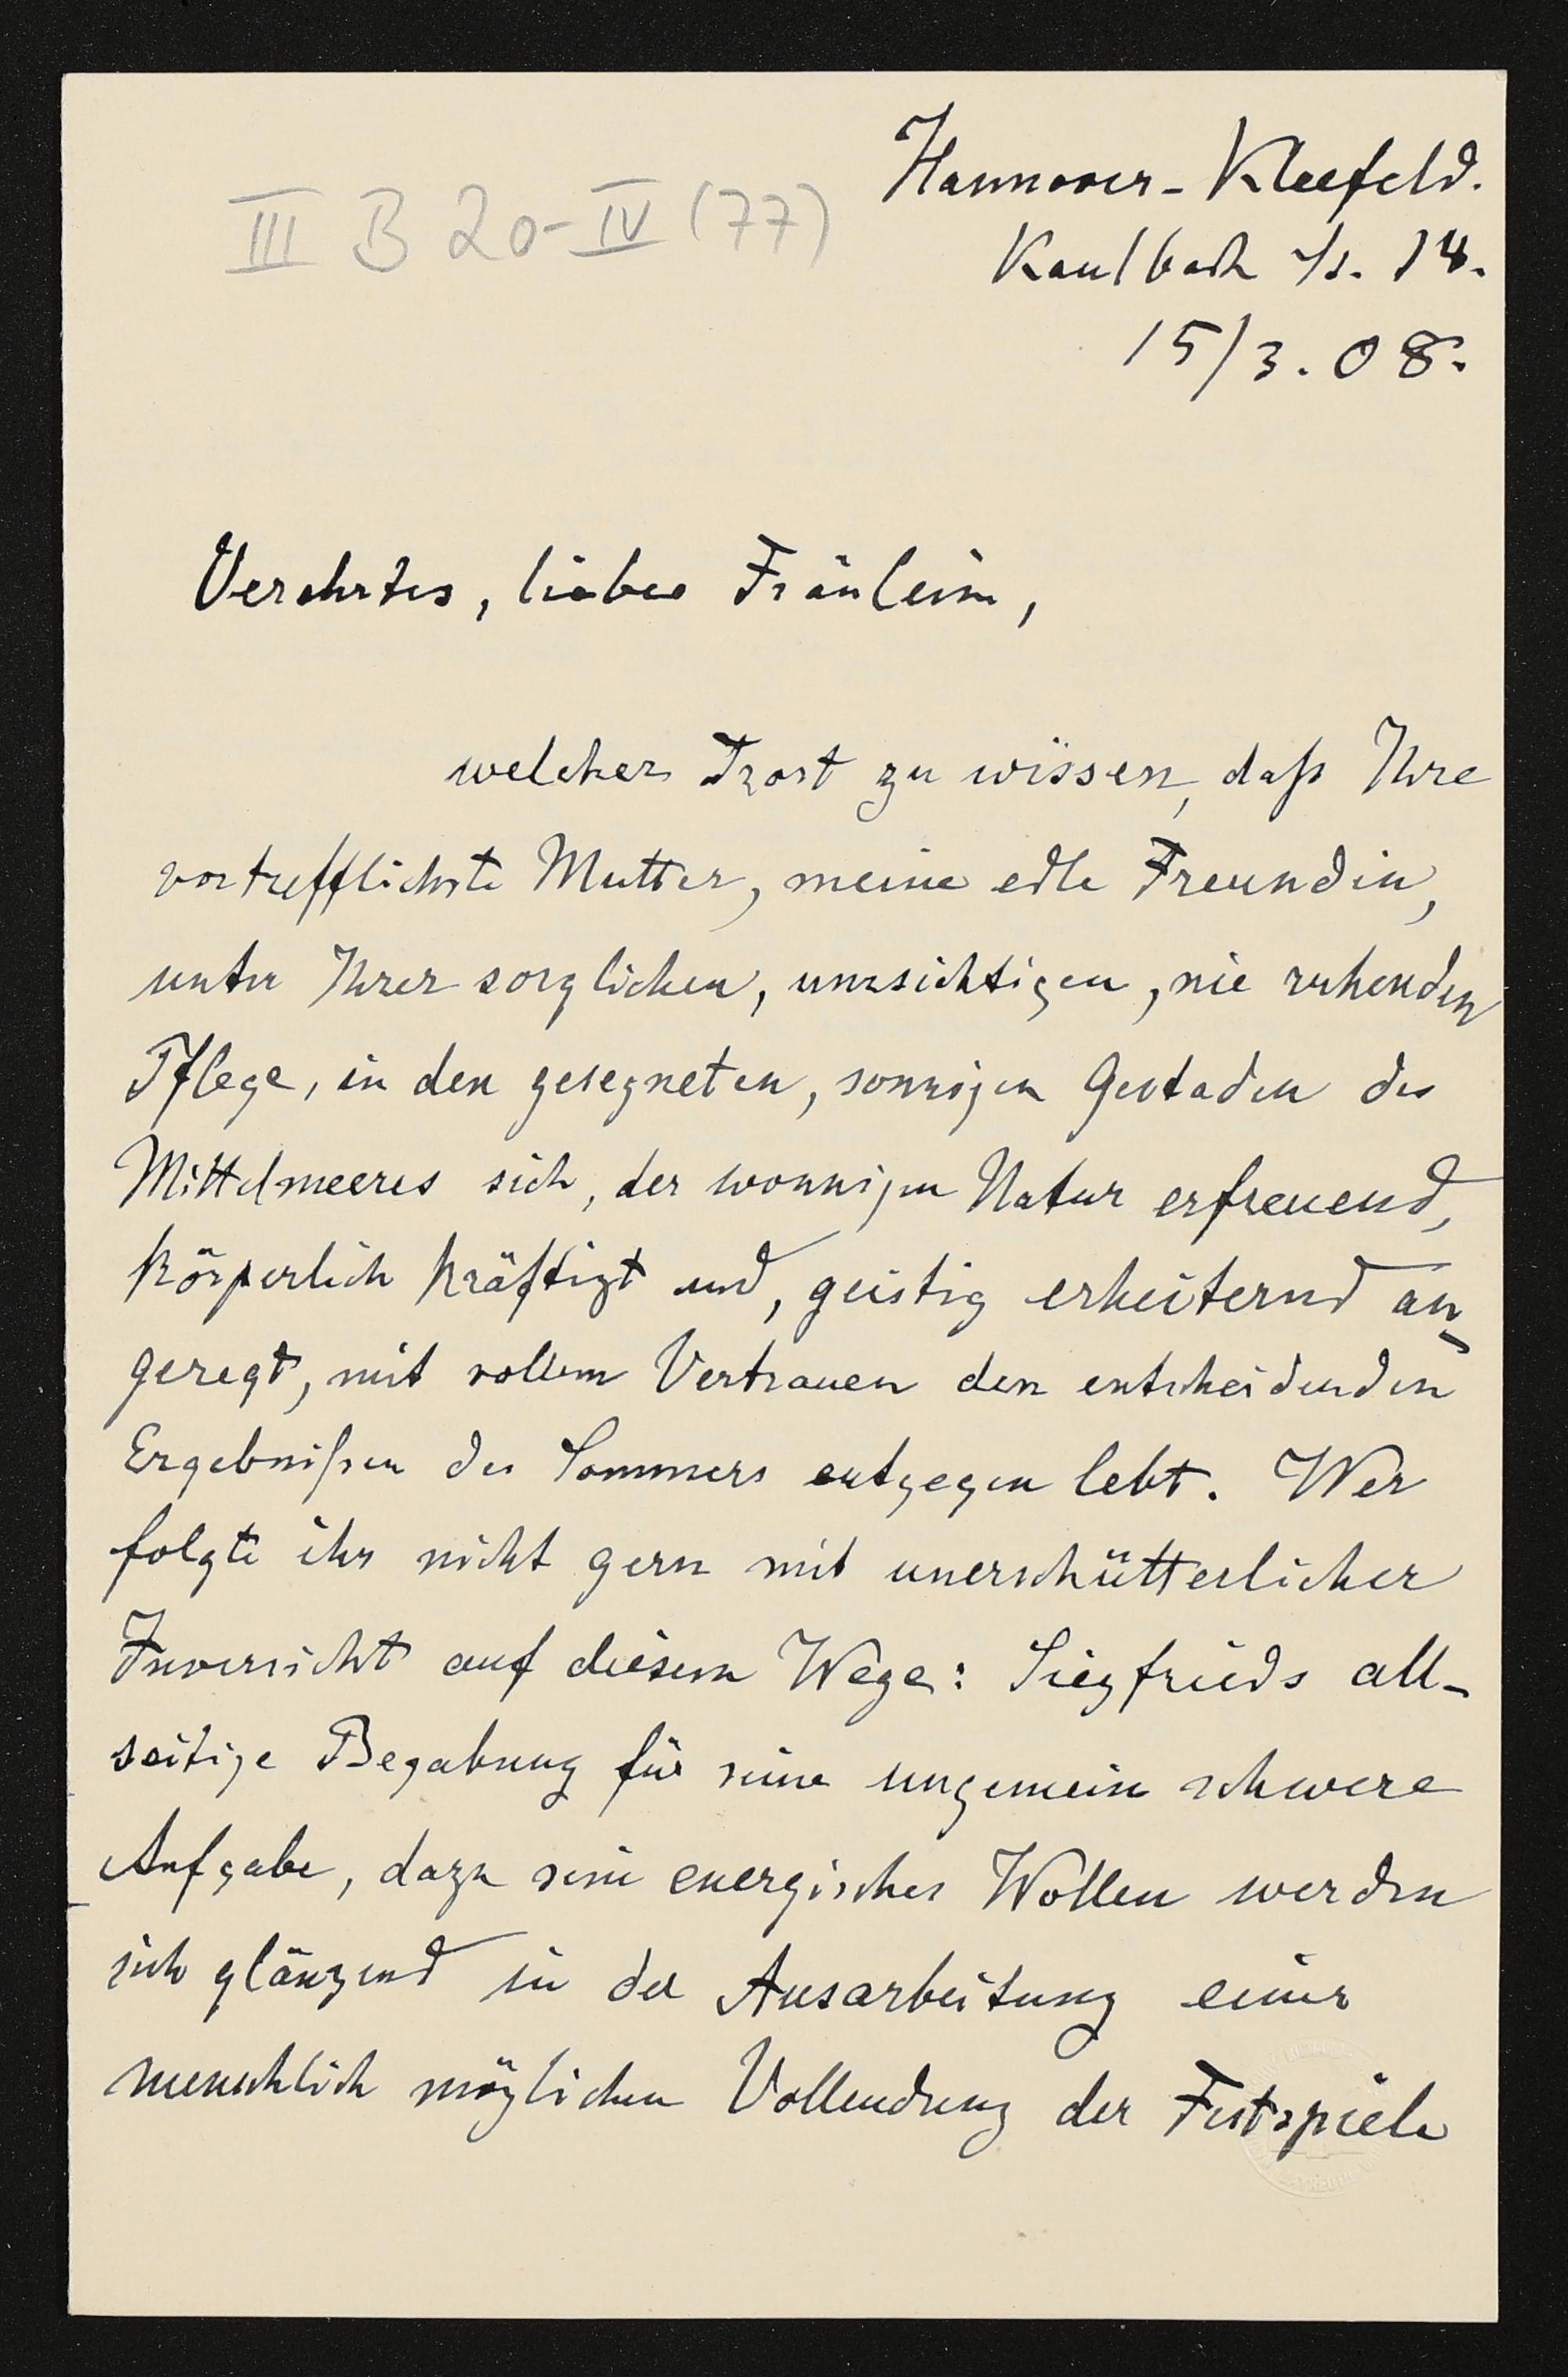 III B 20-IV (77)
Hannover-Kleefeld.
Kaulbach 14.
15/3. 08.
Verehrtes, liebes Fräulein,
welcher Trost zu wissen, daß Ihre
vortrefflichste Mutter, meine edle Freundin,
unter Ihrer sorglichen, umsichtigen, nie ruhenden
Pflege, in den gesegneten, sonnigen Gestaden des
Mittelmeeres sich, der wonnigen Natur erfreuend,
körperlich kräftigt und, geistig erheiternd an-
geregt, mit vollem Vertrauen den entscheidenden
Ergebnißen des Sommers entgegen lebt. Wer
folgte ihr nicht gern mit unerschütterlicher
Zuversicht auf diesem Wege: Siegfrieds all-
seitige Begabung für seine ungemein schwere
Aufgabe, dazu sein energisches Wollen werden
sich glänzend in der Ausarbeitung einer
menschlich möglichen Vollendung der Festspiele